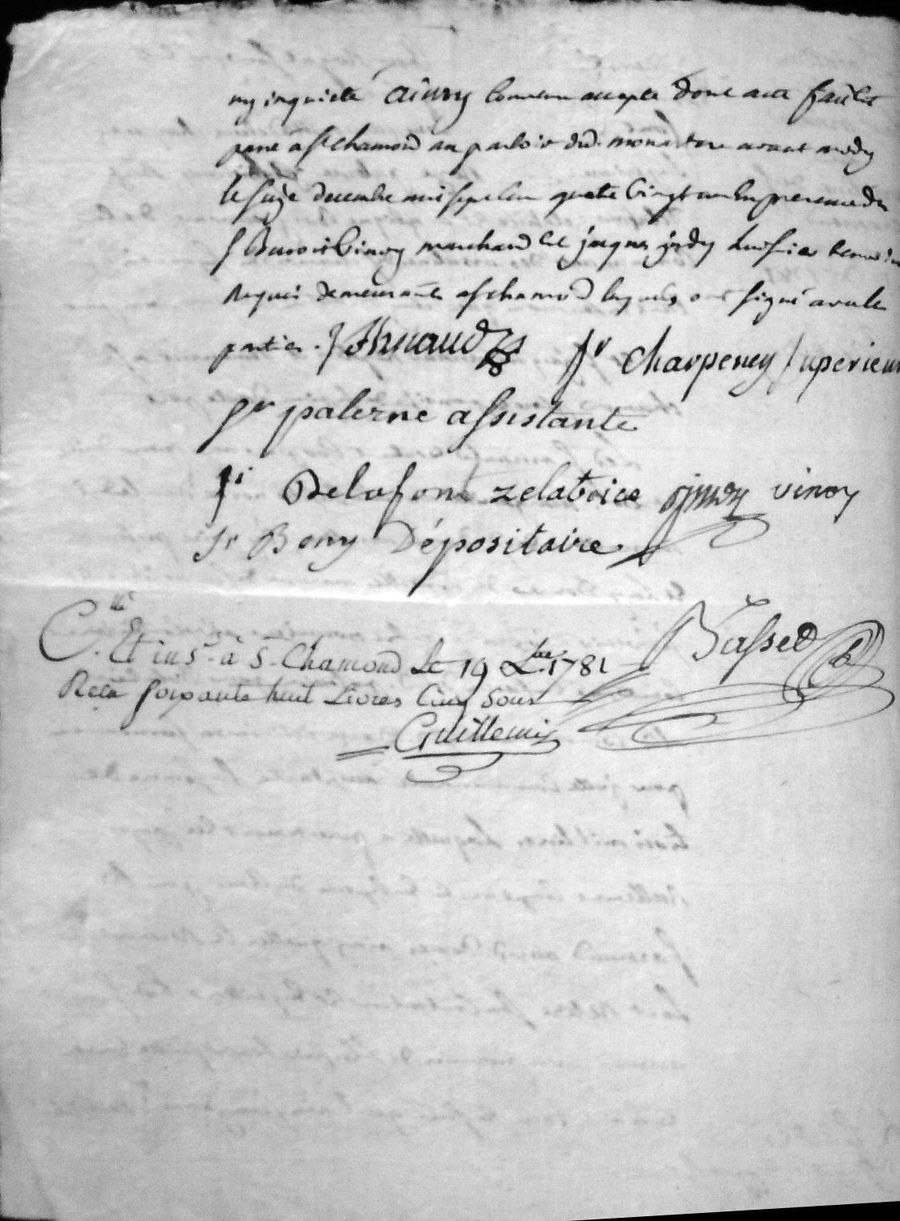 ny inquieté ainsy convenu accepté dont acte fait et
passé a st chamond au parloir dud. monastere avant midy
le seize decembre mil sept cent quatre vingt un En presence du
s. Benoit Vinoy marchand et jacques huissier temoins
Requis demeurants a st chamond lesquels ont signé avec les
parties. Arnaud Sr Charpeney Superieure
Sr palerne assistante
Sr Delafont zelatrice vinoy
Sr Bony Dépositaire
C.lle Et ins.é à S. Chamond Le 19 Xbre 1781
Reçu soixante huit Livres Cinq Sous Basset
Guillemin